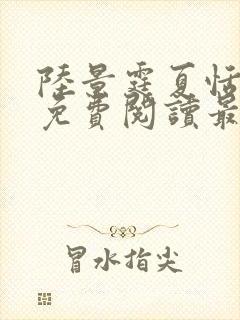 陸景霆夏恬
免費閱讀最
冒水指尖